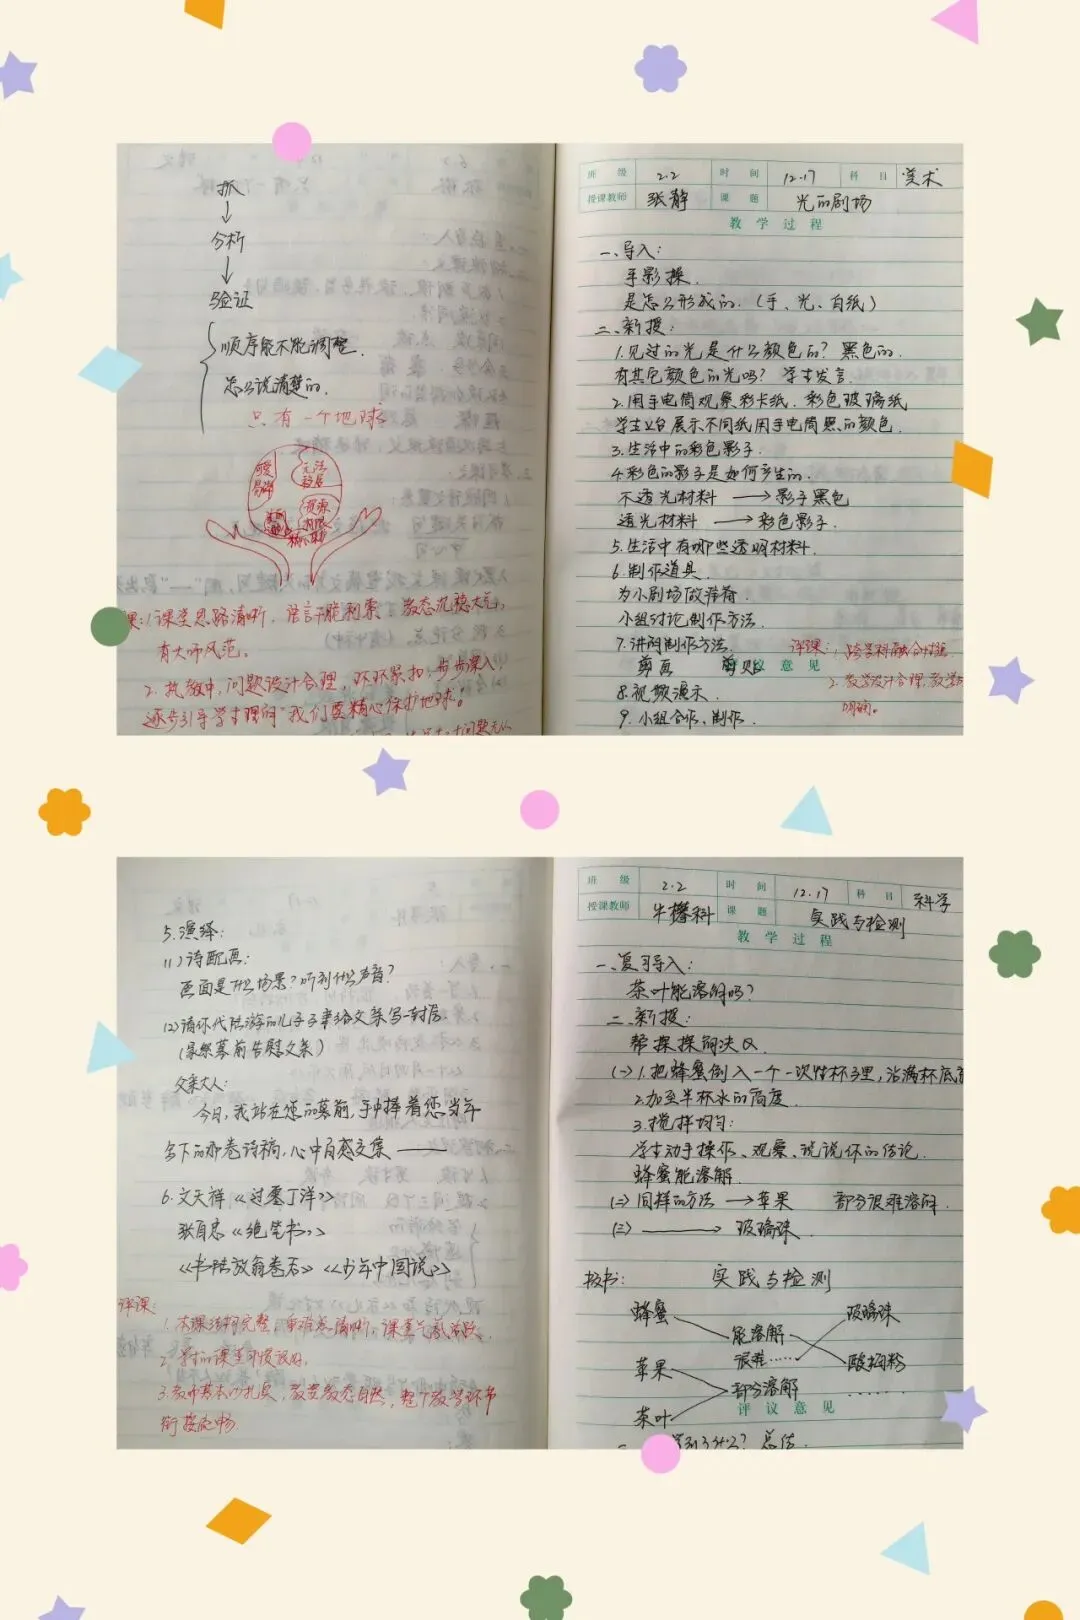 抓
↓
分析
↓
验证
顺序能不能调整.
怎么说清楚的.
只有一个地球
可爱
易碎
无法
移居
资源
有限
课:1.课堂思路清晰，语言干脆利索，教态沉稳大气，
有大师风范。
2. 执教中，问题设计合理，环环紧扣，步步深入，
逐步引导学生理解"我们要精心保护地球。"
班 级 2.2 时 间 12.17 科 目 美术
授课教师 张静 课 题 光的剧场
教 学 过 程
一、导入：
手影操.
是怎么形成的.（手、光、白纸）
二、新授：
1.见过的光是什么颜色的？ 黑色的.
有其它颜色的光吗？ 学生发言.
2.用手电筒观察彩卡纸、彩色玻璃纸
学生上台展示不同纸用手电筒照的颜色.
3.生活中的彩色影子.
4.彩色的影子是如何产生的.
不透光材料 → 影子黑色
透光材料 → 彩色影子.
5.生活中有哪些透明材料.
6.制作道具.
为小剧场做准备.
小组讨论制作方法.
7.讲解制作方法. 评课：1.跨学科融合
剪画 剪贴 评 议 意 见
2.教学设计合理，教学
明确。
8.视频演示.
9.小组合作、制作.
5.演绎：
(1)诗配画：
画面是什么场景？听到什么声音？
(2)请你代陆游的儿子子聿给父亲写一封信.
(家祭墓前告慰父亲)
父亲大人：
今日，我站在您的墓前，手中捧着您当年
写下的那卷诗稿，心中百感交集——
6.文天祥《过零丁洋》
张自忠《绝笔书》
《书陆放翁卷后》《少年中国说》
评课：
1.本课结构完整，重难点清晰，课堂气氛活跃.
2.学生的课堂习惯很好.
3.教师基本功扎实，教姿教态自然，整个教学环节
衔接流畅.
班 级 2.2 时 间 12.17 科 目 科学
授课教师 牛馨科 课 题 实践与检测
教 学 过 程
一、复习导入：
茶叶能溶解吗？
二、新授：
帮探探解决Q.
(一) 1.把蜂蜜倒入一个一次性杯子里，沾满杯底
2.加至半杯水的高度.
3.搅拌均匀：
学生动手操作、观察、说说你的结论.
蜂蜜能溶解.
(二) 同样的方法 → 苹果 部分很难溶解.
(三) → 玻璃珠.
板书： 实践与检测
蜂蜜 玻璃珠
能溶解
很难…… 酸梅粉
苹果
部分溶解 ……
评 议 意 见
茶叶
总结.